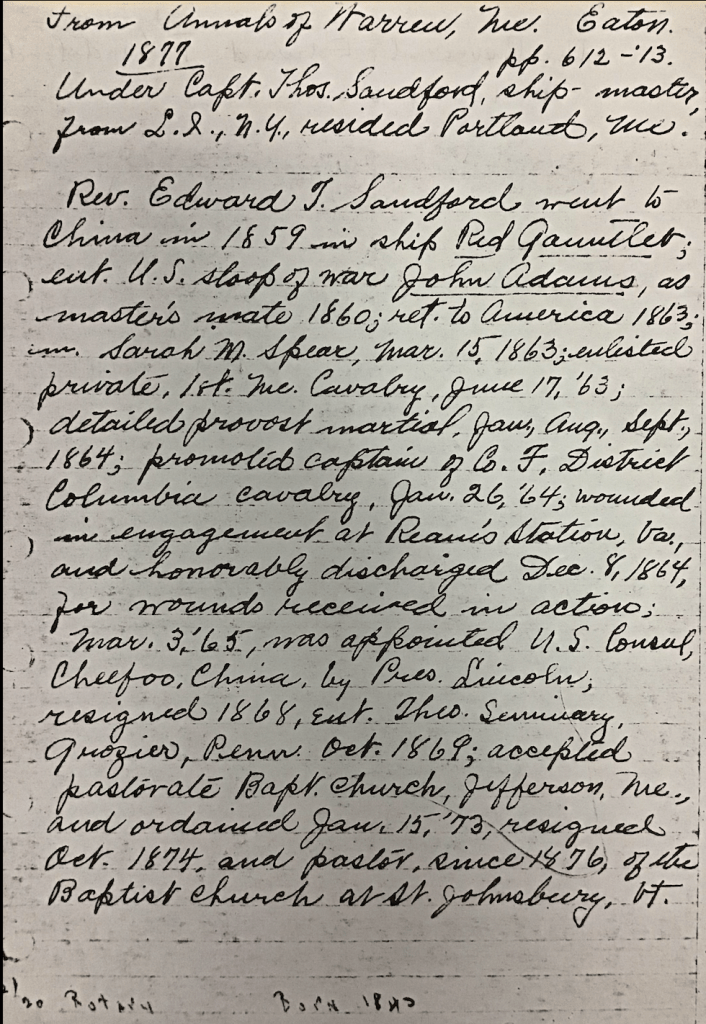 From Annals of Warren, Me. Eaton.
1877 pp. 612-'13.
Under Capt. Thos. Sandford, ship-master,
from L.I., N.Y., resided Portland, Me.
Rev. Edward T. Sandford went to
China in 1859 in ship Red Gauntlet;
ent. U.S. sloop of war John Adams, as
master's mate 1860; ret. to America 1863;
m. Sarah M. Spear, Mar. 15, 1863; enlisted
private, 1st. Me. Cavalry, June 17, '63;
detailed provost martial, Jan., Aug., Sept.,
1864; promoted captain of Co. F, District
Columbia cavalry, Jan. 26, '64; wounded
in engagement at Ream's Station, Va.,
and honorably discharged Dec. 8, 1864,
for wounds received in action;
Mar. 3, '65, was appointed U.S. Consul,
Cheefoo, China, by Pres. Lincoln;
resigned 1868, ent. Theo. Seminary,
Grozier, Penn. Oct. 1869; accepted
pastorate Bapt. church, Jefferson, Me.,
and ordained Jan. 15, '73, resigned
Oct. 1874, and pastor, since 1876, of the
Baptist church at St. Johnsbury, Vt.
Born